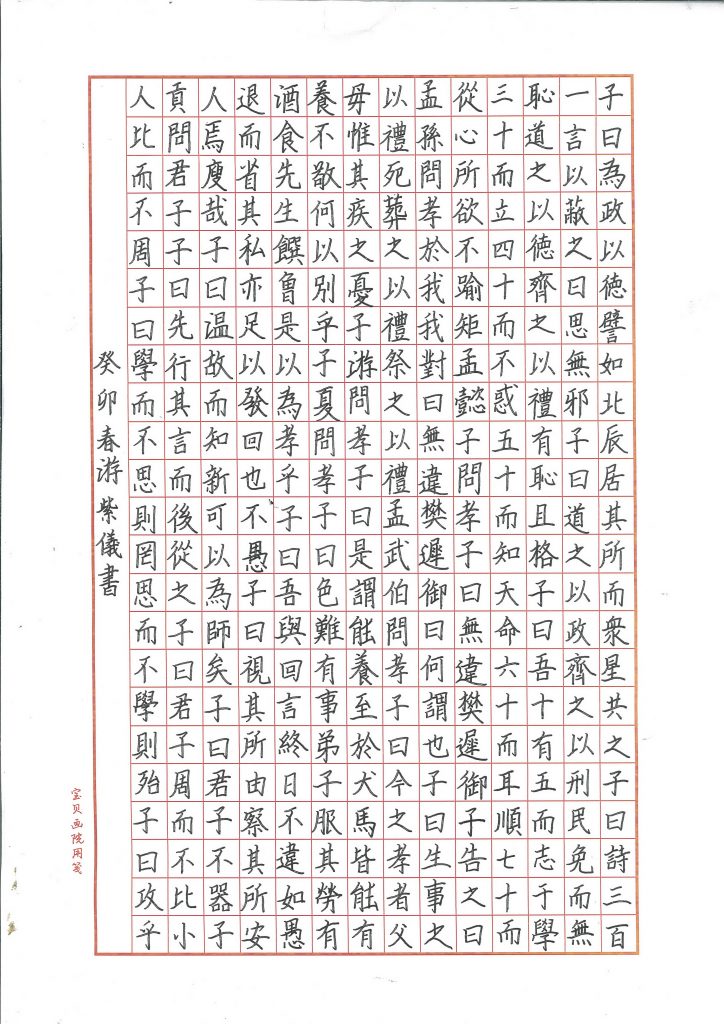 子曰為政以徳譬如北辰居其所而衆星共之子曰詩三百
一言以蔽之曰思無邪子曰道之以政齊之以刑民免而無
恥道之以徳齊之以禮有恥且格子曰吾十有五而志于學
三十而立四十而不惑五十而知天命六十而耳順七十而
從心所欲不踰矩孟懿子問孝子曰無違樊遲御子告之曰
孟孫問孝於我我對曰無違樊遲御曰何謂也子曰生事之
以禮死葬之以禮祭之以禮孟武伯問孝子曰今之孝者父
母惟其疾之憂子游問孝子曰是謂能養至於犬馬皆能有
養不敬何以別乎子夏問孝子曰色難有事弟子服其勞有
酒食先生饌魯是以為孝乎子曰吾與回言終日不違如愚
退而省其私亦足以發回也不愚子曰視其所由察其所安
人焉廋哉子曰温故而知新可以為師矣子曰君子不器子
貢問君子子曰先行其言而後從之子曰君子周而不比小
人比而不周子曰學而不思則罔思而不學則殆子曰攻乎
癸卯春游紫儀書
宝贝画院用笺